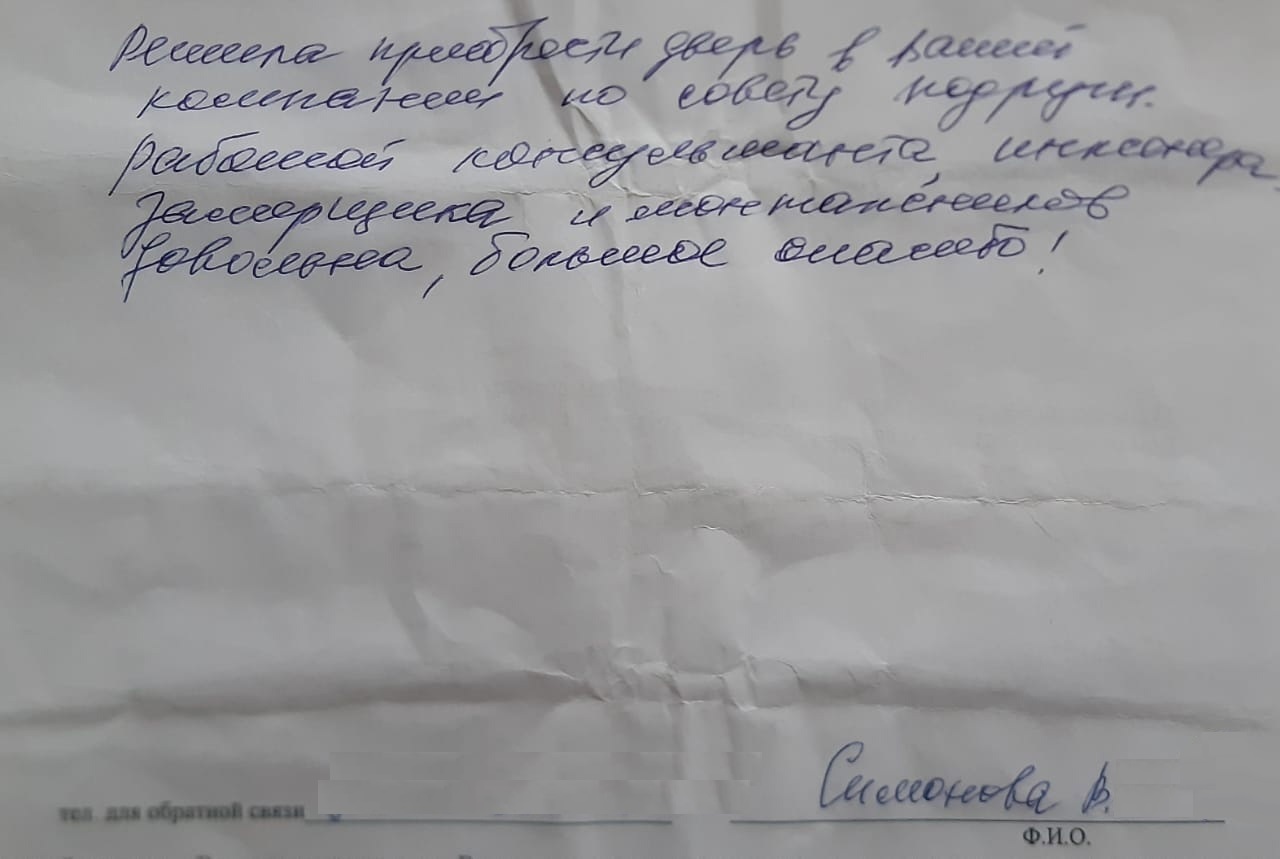 Решила приобрести дверь в вашей
компании по совету подруги.
Работой консультанта, инженера
замерщика и монтажников
довольна, большое спасибо!
Симонова В.
тел. для обратной связи
Ф.И.О.